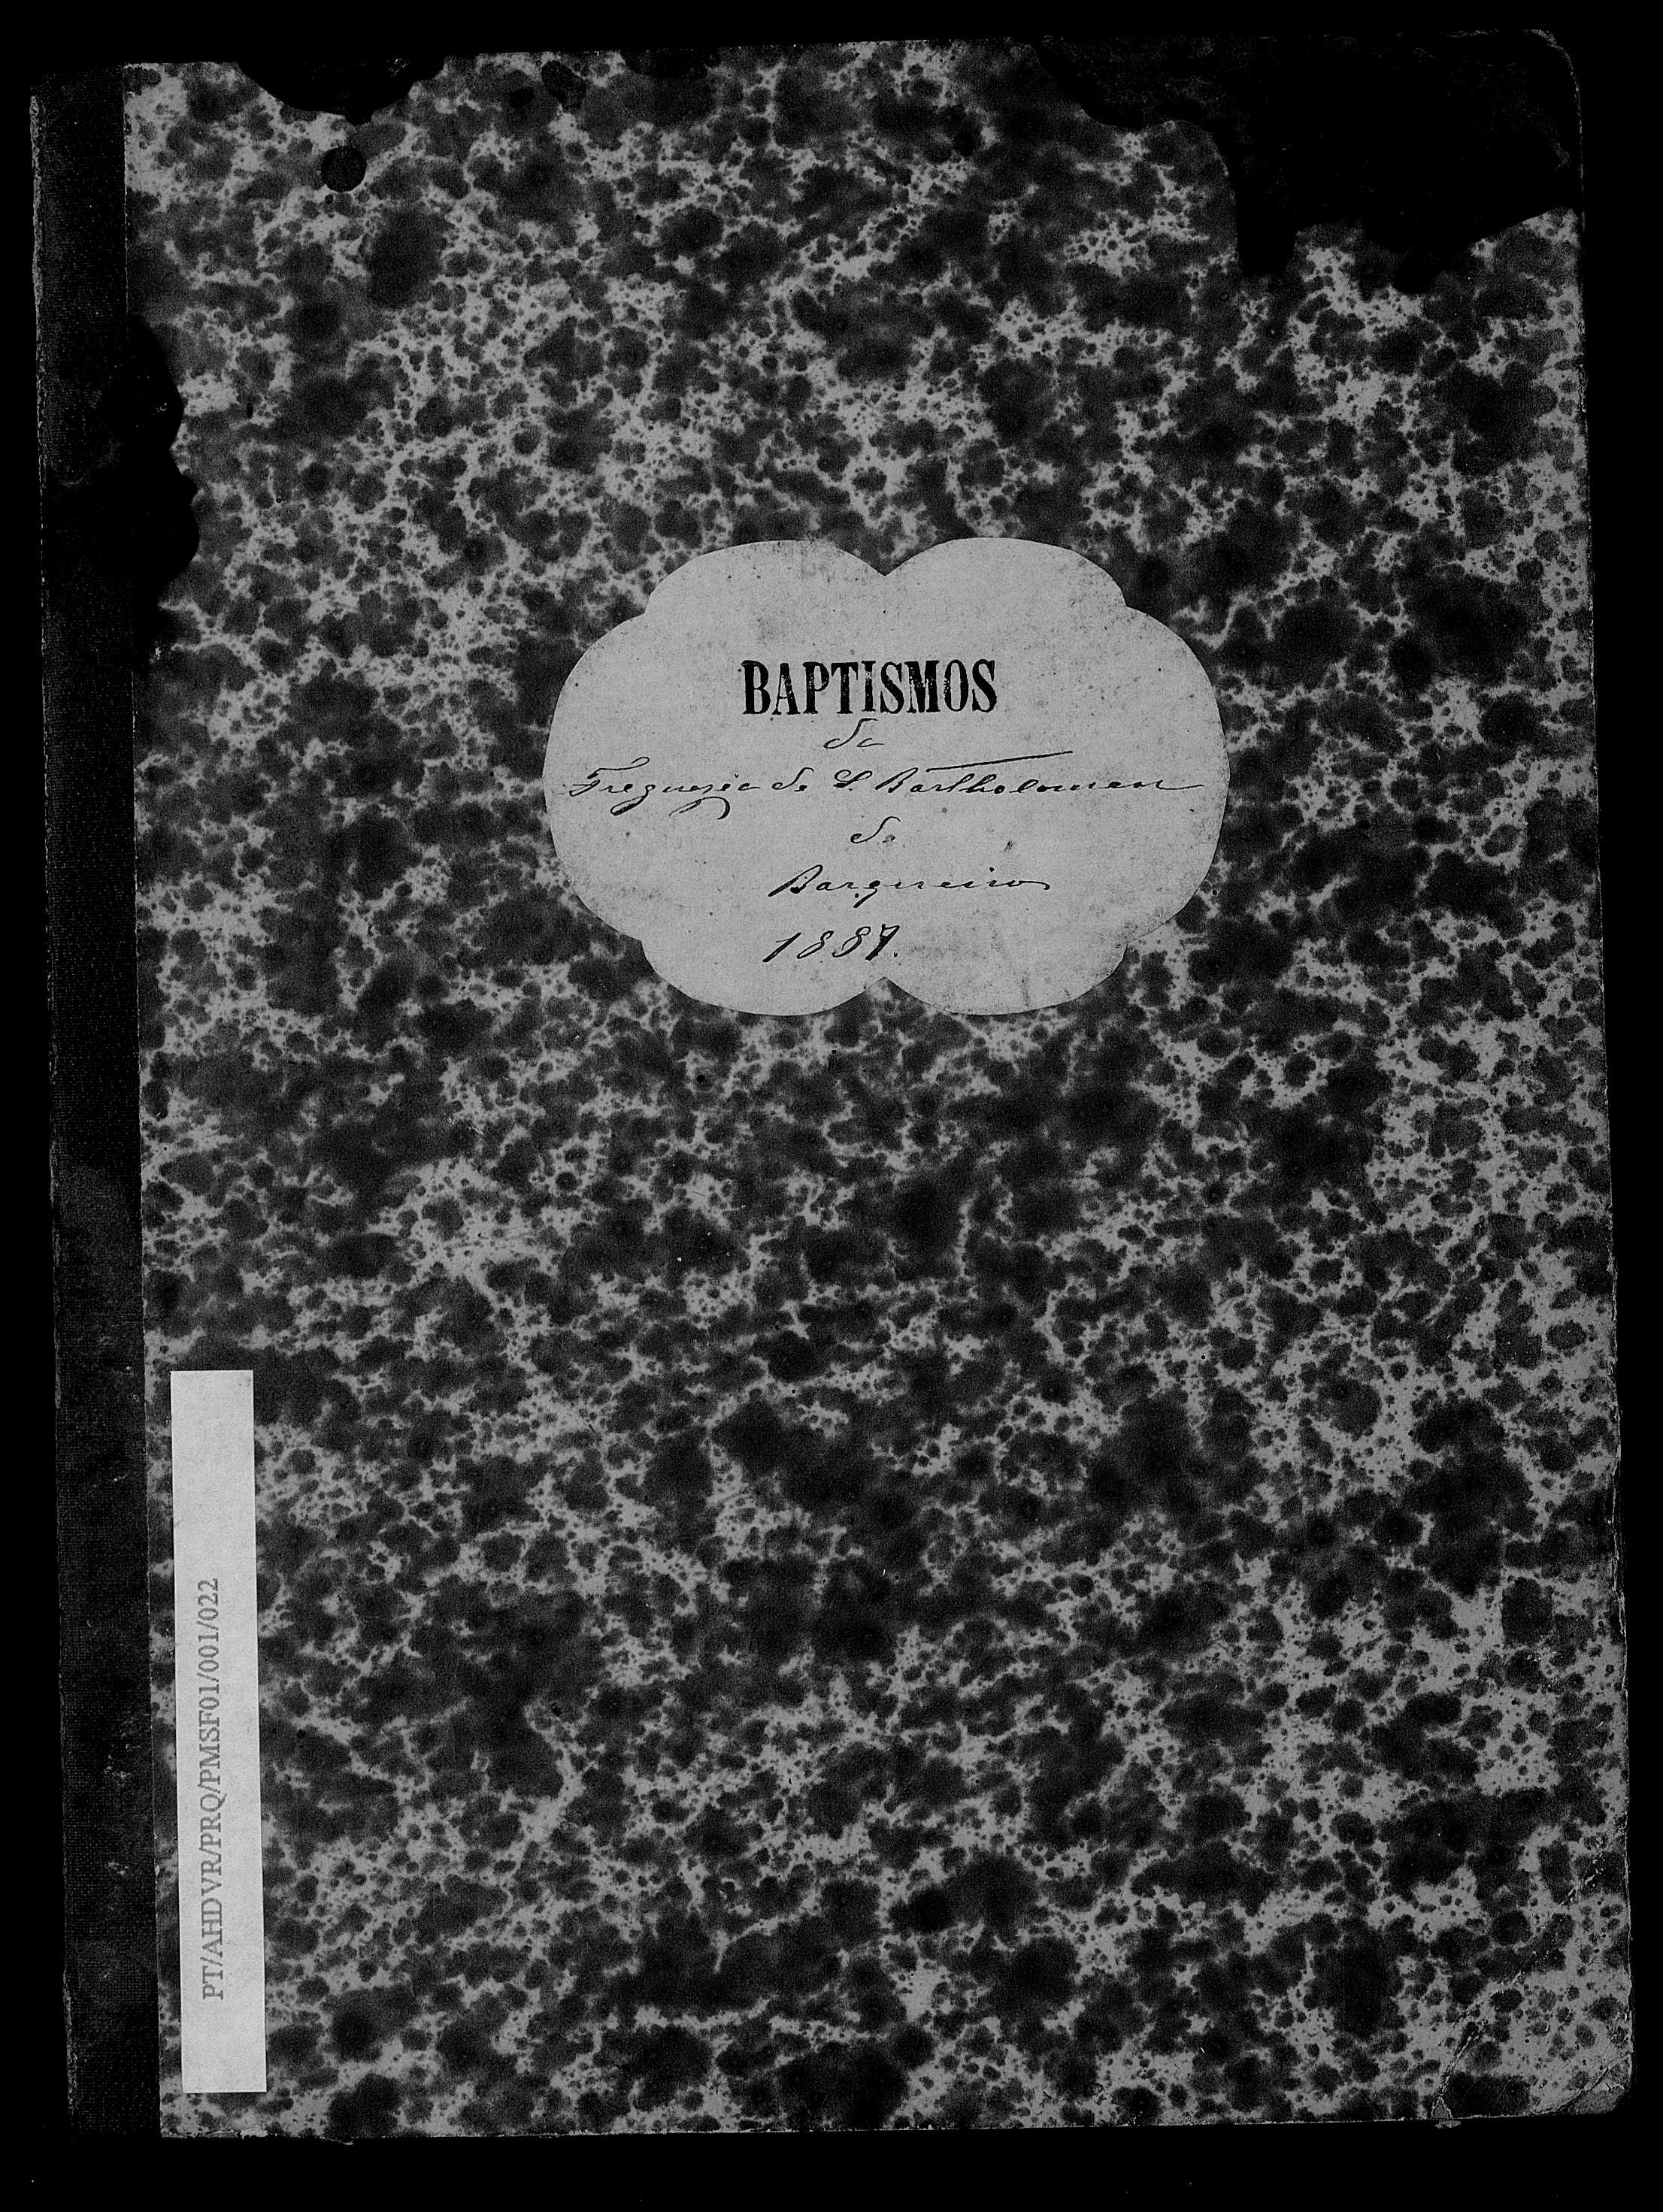 BAPTISMOS
da
Freguezia de S. Bartholomeu
de
Barqueiros
1887.
PT/AHDVR/PRQ/PMSF01/001/022